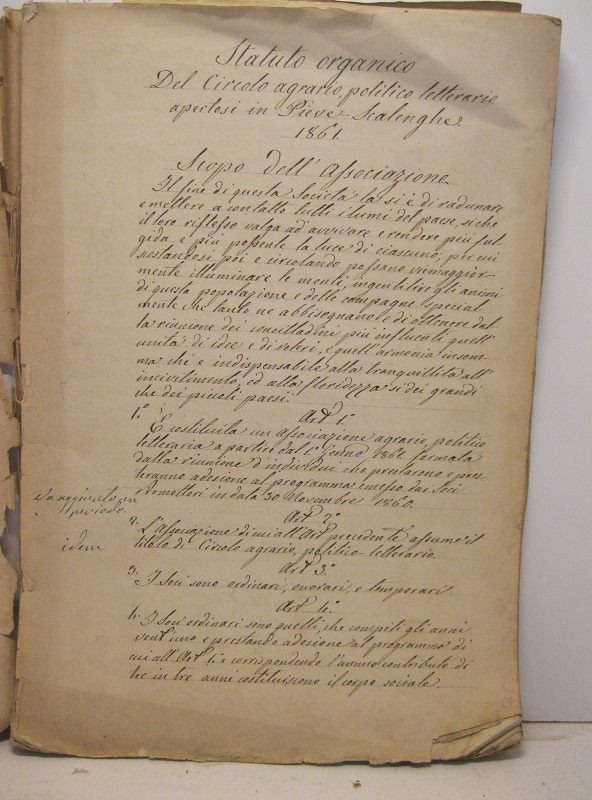 Statuto organico
Del Circolo agrario, politico letterario
apertosi in Pieve-Scalenghe
1861.
Scopo dell'Associazione.
Il fine di questa Società la si è di radunare
e mettere a contatto tutti i lumi del paese, sì che
il loro riflesso valga ad avvivare e rendere più ful
gida, e più possente la luce di ciascuno, per cui
postandosi poi e circolando possano viemaggior
mente illuminare le menti, ingentilire gli animi
di questa popolazione e delle campagne special
mente che tanto ne abbisognano e di ottenere dal
la riunione dei concittadini più influenti quell'
unità di idee e di voleri, e quell'armonia insom
ma che è indispensabile alla tranquillità all'
incivilimento, ed alla floridezza sì dei grandi
che dei piccoli paesi.
Art 1.º
1.º È costituita un associazione agrario, politico
letteraria a partire dal 1º Genno 1861 formata
dalla riunione d'individui che prestarono e pres
teranno adesione al programma emesso dai Soci
Promottori in data 30 Novembre 1860.
Art 2.º
Va aggiunto un
periodo
2. L'Associazione di cui all'Art precedente assume il
titolo di Circolo agrario, politico-letterario
idem
Art 3.º
3. I Soci sono ordinari, onorari, e temporari
Art 4.º
4. I Soci ordinari sono quelli, che compiti gli anni
vent'uno e prestando adesione al programma di
cui all'Art 1.º corrispondendo l'annuo contributo di
tre in tre anni costituiscono il corpo sociale.